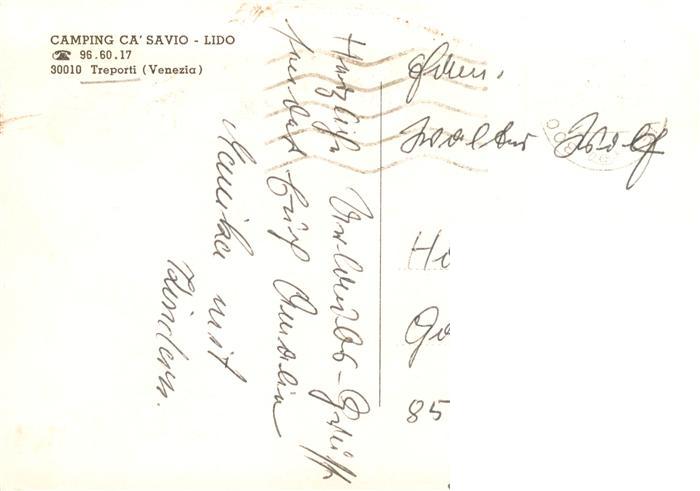 CAMPING CA' SAVIO - LIDO
☎ 96.60.17
30010 Treporti (Venezia)
Herzliche Urlaubs-Grüße
sendet Euch
Monika mit
Kindern.
Fam.
Walter Wolf
Ho
Ga
85